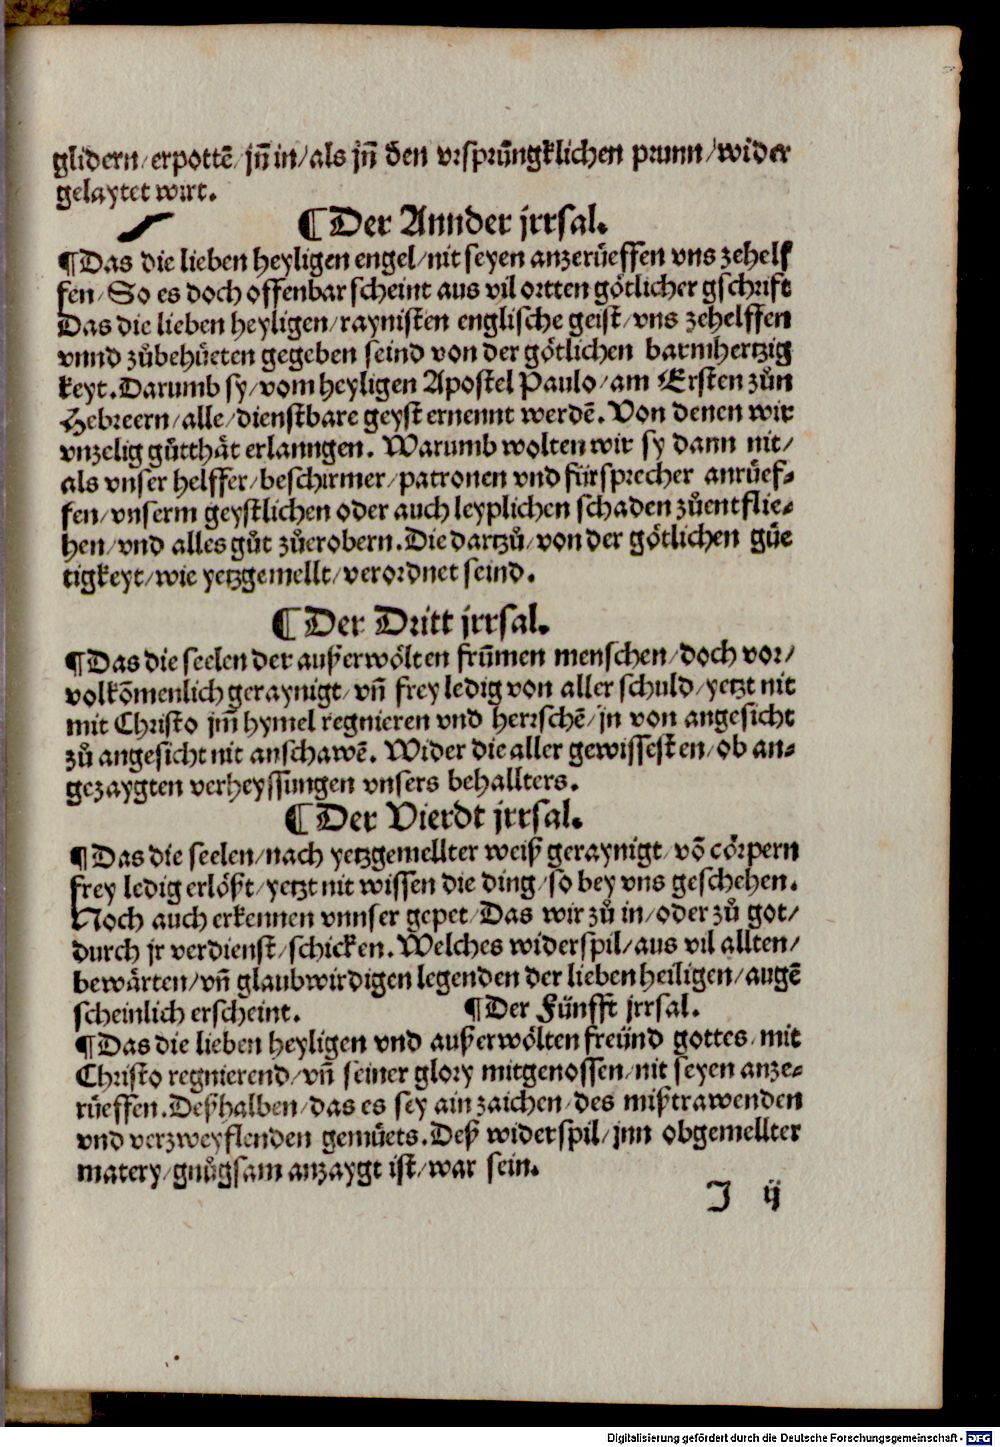 glidern/ erpottē/ jñ in/ als jñ den vrsprüngklichen prunn/ wider
gelaytet wirt.
¶ Der Annder jrrsal.
¶ Das die lieben heyligen engel/ nit seyen anzerüeffen vns zehelf
fen/ So es doch offenbar scheint aus vil ortten götlicher gschrift
Das die lieben heyligen/ raynisten englische geist/ vns zehelffen
vnnd zůbehüeten gegeben seind von der götlichen barmhertzig
keyt. Darumb sy/ vom heyligen Apostel Paulo/ am Ersten zůn
Hebreern/ alle/ dienstbare geyst ernennt werdē. Von denen wir
vnzelig gůtthät erlanngen. Warumb wolten wir sy dann nit/
als vnser helffer/ beschirmer/ patronen vnd fürsprecher anrüef-
fen/ vnserm geystlichen oder auch leyplichen schaden zůentflie-
hen/ vnd alles gůt zůerobern. Die dartzů/ von der götlichen güe
tigkeyt/ wie yetzgemellt/ verordnet seind.
¶ Der Dritt jrrsal.
¶ Das die seelen der außerwölten frūmen menschen/ doch vor/
volkōmenlich geraynigt/ vñ frey ledig von aller schuld/ yetzt nit
mit Christo jm̄ hymel regnieren vnd herrschē/ jn von angesicht
zů angesicht nit anschawē. Wider die aller gewissesten/ ob an-
gezaygten verheyssungen vnsers behallters.
¶ Der Vierdt jrrsal.
¶ Das die seelen/ nach yetzgemellter weiß geraynigt/ vō cörpern
frey ledig erlößt/ yetzt nit wissen die ding/ so bey vns geschehen.
Noch auch erkennen vnnser gepet/ Das wir zů in/ oder zů got/
durch jr verdienst/ schicken. Welches widerspil/ aus vil allten/
bewärten/ vñ glaubwirdigen legenden der lieben heiligen/ augē
scheinlich erscheint. ¶ Der Fünfft jrrsal.
¶ Das die lieben heyligen vnd außerwölten freünd gottes/ mit
Christo regnierend/ vñ seiner glory mitgenossen/ nit seyen anze-
rüeffen. Deßhalben/ das es sey ain zaichen/ des mißtrawenden
vnd verzweyflenden gemüets. Deß widerspil/ jnn obgemellter
matery/ gnůgsam anzaygt ist/ war sein.
J ij
Digitalisierung gefördert durch die Deutsche Forschungsgemeinschaft - DFG